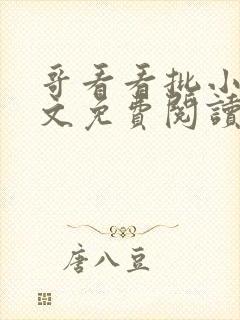 哥看看批小
文免費閱讀
唐八豆